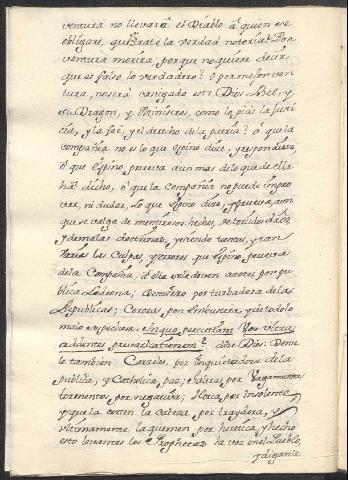 ventura no llevará el Diablo à quien ese
obligare, la verdad notoria? Por
ventura morira, porque no quiere decir,
que es falso lo verdadero? ò por mejor ven-
tura, no será castigado este Dios Abel, y
su Dragon, y Ministros, como lo pide la justi
cia, y la fee, y el derecho de la patria? ò que la
compañia no es lo que espino dice, y responderé,
ò que Espino prueva aun mas de lo que de ella
ha dicho, ò que la Compañia no puede impro
var, ni dudar, lo que Espino dice, y prueva, aun
que se valga de mentirosos hechos,
y de malas doctrinas, y siendo tantas, y tan
varias las culpas, y errores que Espino prueva
de la Compañia, à ella se le deven azotes por pu
blica Ladrona; Destierro por turbadora de las
Republicas; Corozas por embustera, y de todo lo
malo suspechosa. In quo percutiam vos ultra
addentes prevaricationem? dice Dios. Deme
le tambien por inquietadora de la
publica, y Catholica, paz; Galeras, por Vagamunda
tormentos, por negativa; Horca, por insolente,
y que la corten la Cabeza por traydora, y
ultimamente la quemen por heretica, y hecho
esto levanten los Prophetas la voz en el Pueblo,
y digan le